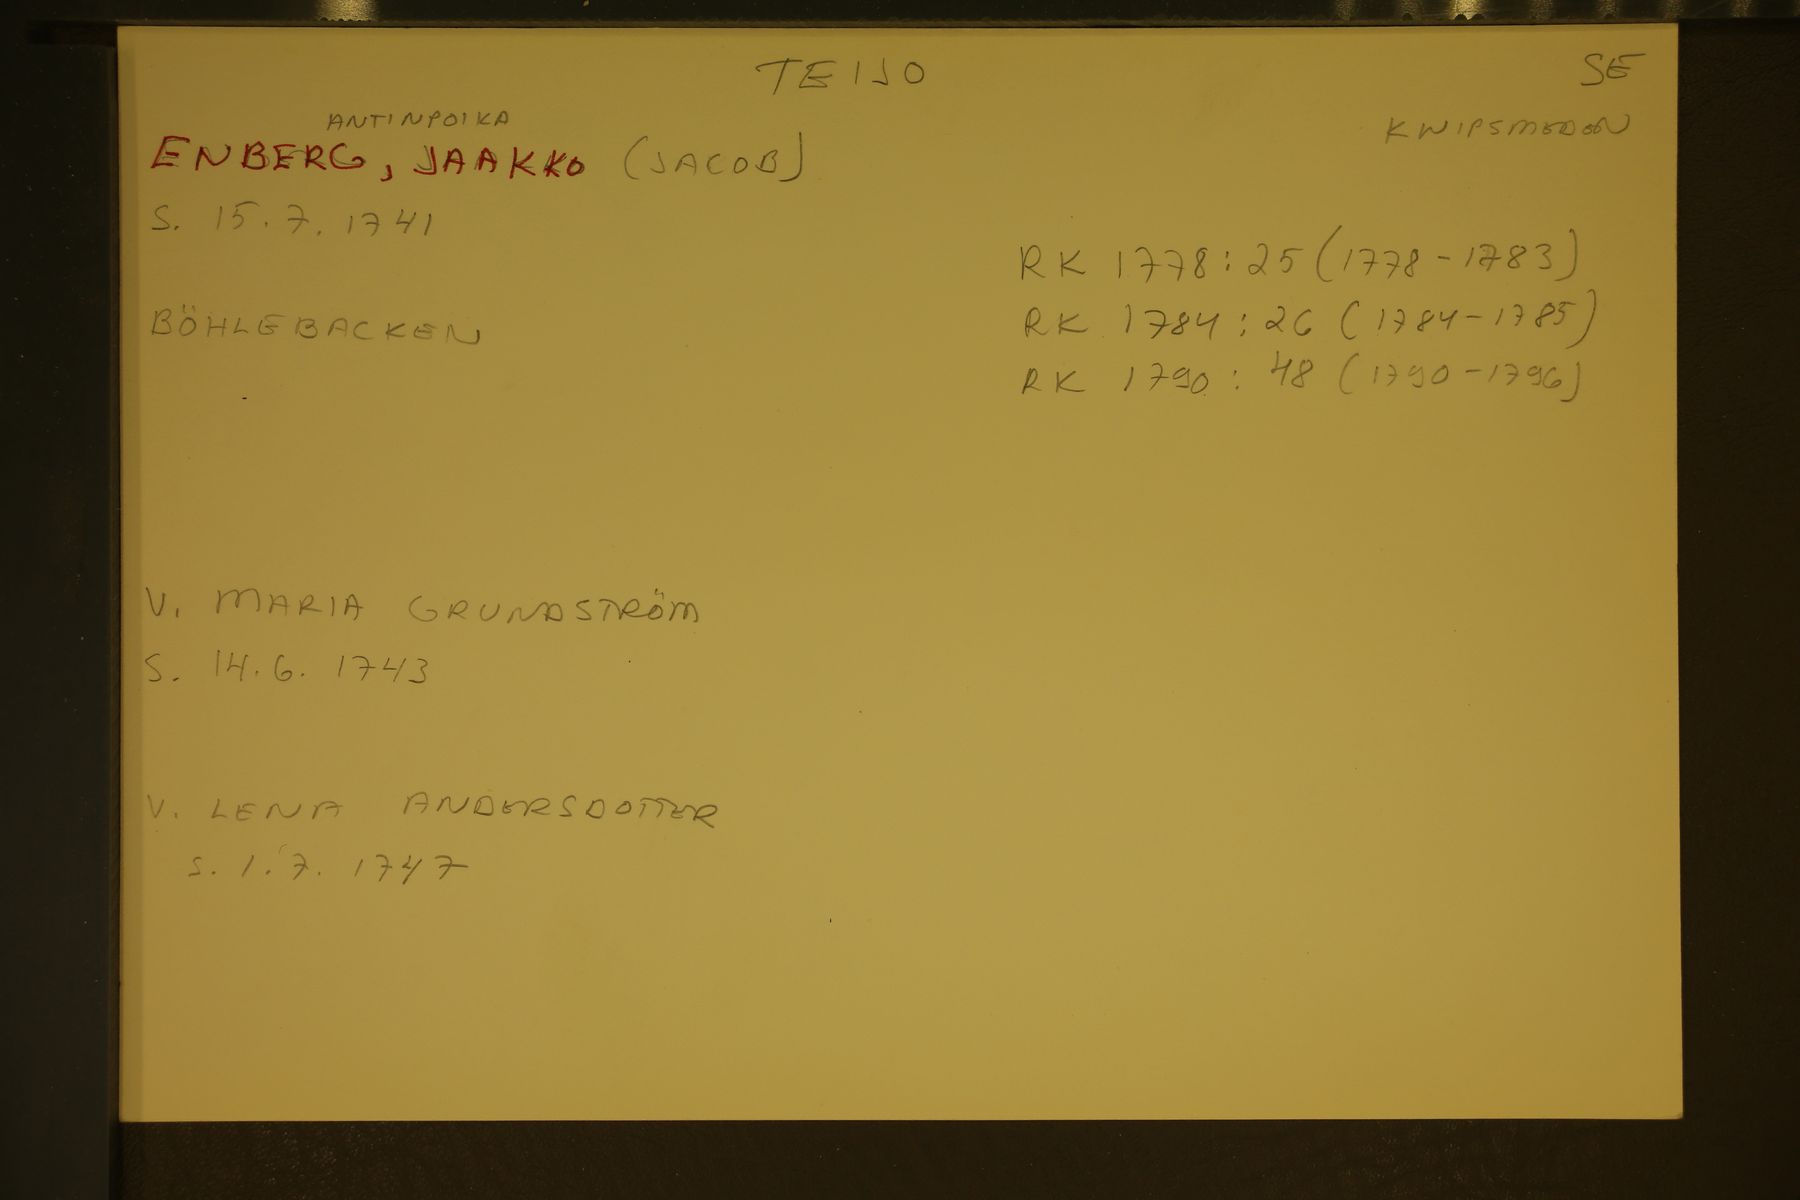 TEIJO
SE
KNIPSMEDEN
ANTINPOIKA
ENBERG, JAAKKO (JACOB)
S. 15.7.1741
RK 1778:25 (1778-1783)
BÖHLEBACKEN
RK 1784:26 (1784-1785)
RK 1790:48 (1790-1796)
V. MARIA GRUNDSTRÖM
S. 14.6.1743
V. LENA ANDERSDOTTER
S. 1.7.1747